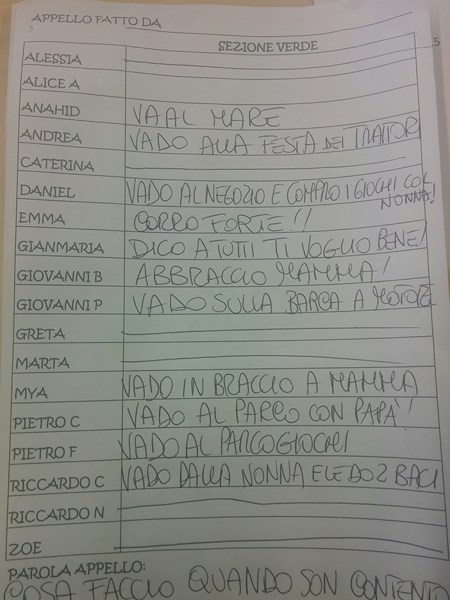 APPELLO FATTO DA
SEZIONE VERDE
ALESSIA
ALICE A
ANAHID VA AL MARE
ANDREA VADO ALLA FESTA DEI TRATTORI
CATERINA
DANIEL VADO AL NEGOZIO E COMPRO I GIOCHI COL
NONNA!
EMMA CORRO FORTE!!
GIANMARIA DICO A TUTTI TI VOGLIO BENE!
GIOVANNI B ABBRACCIO MAMMA!
GIOVANNI P VADO SULLA BARCA A MOTORE
GRETA
MARTA
MYA VADO IN BRACCIO A MAMMA
PIETRO C VADO AL PARCO CON PAPÀ!
PIETRO F VADO AL PARCO GIOCHI
RICCARDO C VADO DALLA NONNA E LE DO 2 BACI
RICCARDO N
ZOE
PAROLA APPELLO:
COSA FACCIO QUANDO SON CONTENTO